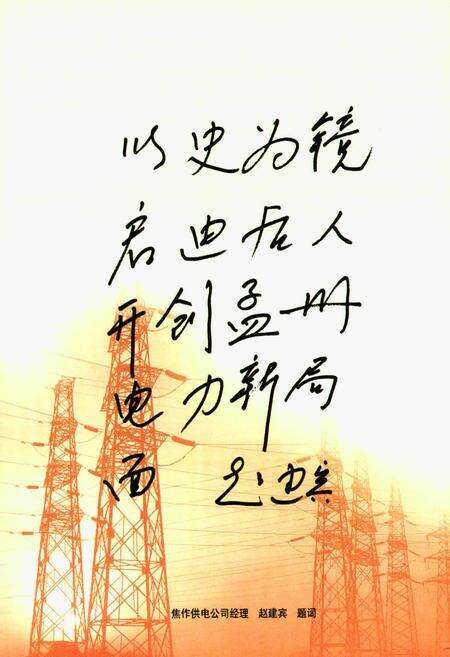 以史为镜
启迪后人
开创孟州
电力新局
面 赵建宾
焦作供电公司经理 赵建宾 题词